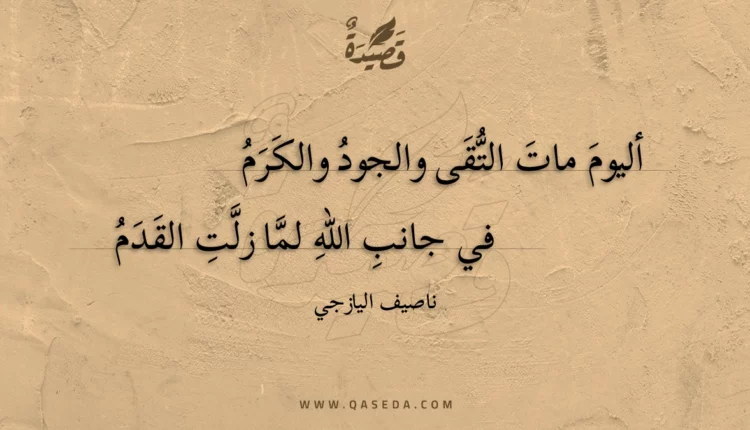 قَصِيدَةٌ
أليومَ ماتَ التُّقَى والجودُ والكَرَمُ
في جانبِ اللهِ لمَّا زلَّتِ القَدَمُ
ناصيف اليازجي
WWW.QASEDA.COM